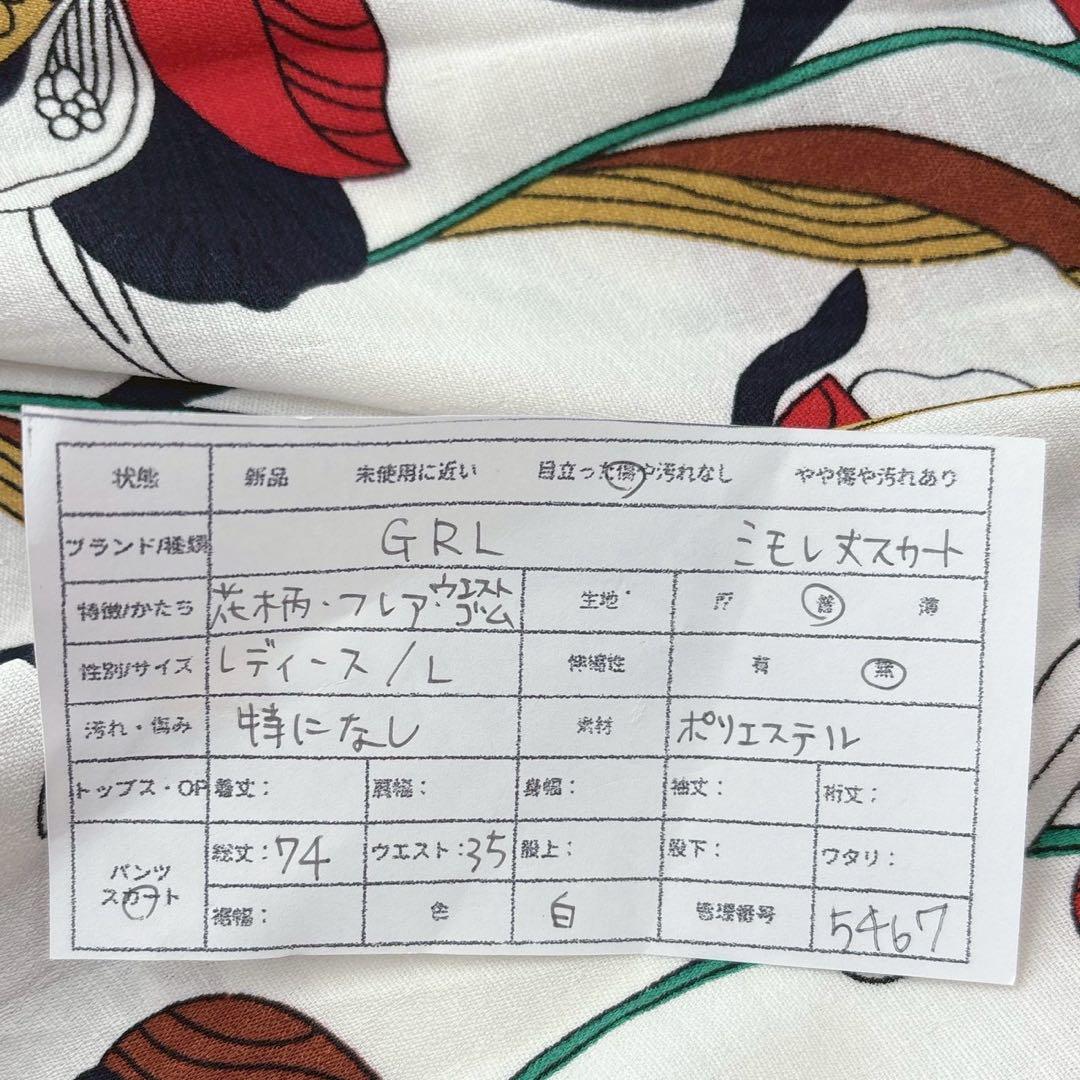 状態 新品 未使用に近い 目立った傷や汚れなし やや傷や汚れあり
ブランド/種類 GRL ミモレ丈スカート
特徴/かたち 花柄・フレア・ウエストゴム 生地 厚 普 薄
性別/サイズ レディース/L 伸縮性 有 無
汚れ・傷み 特になし 素材 ポリエステル
トップス・OP 着丈: 肩幅: 身幅: 袖丈: 裄丈:
パンツ スカート 総丈:74 ウエスト:35 股上: 股下: ワタリ:
裾幅: 色 白 管理番号 5467